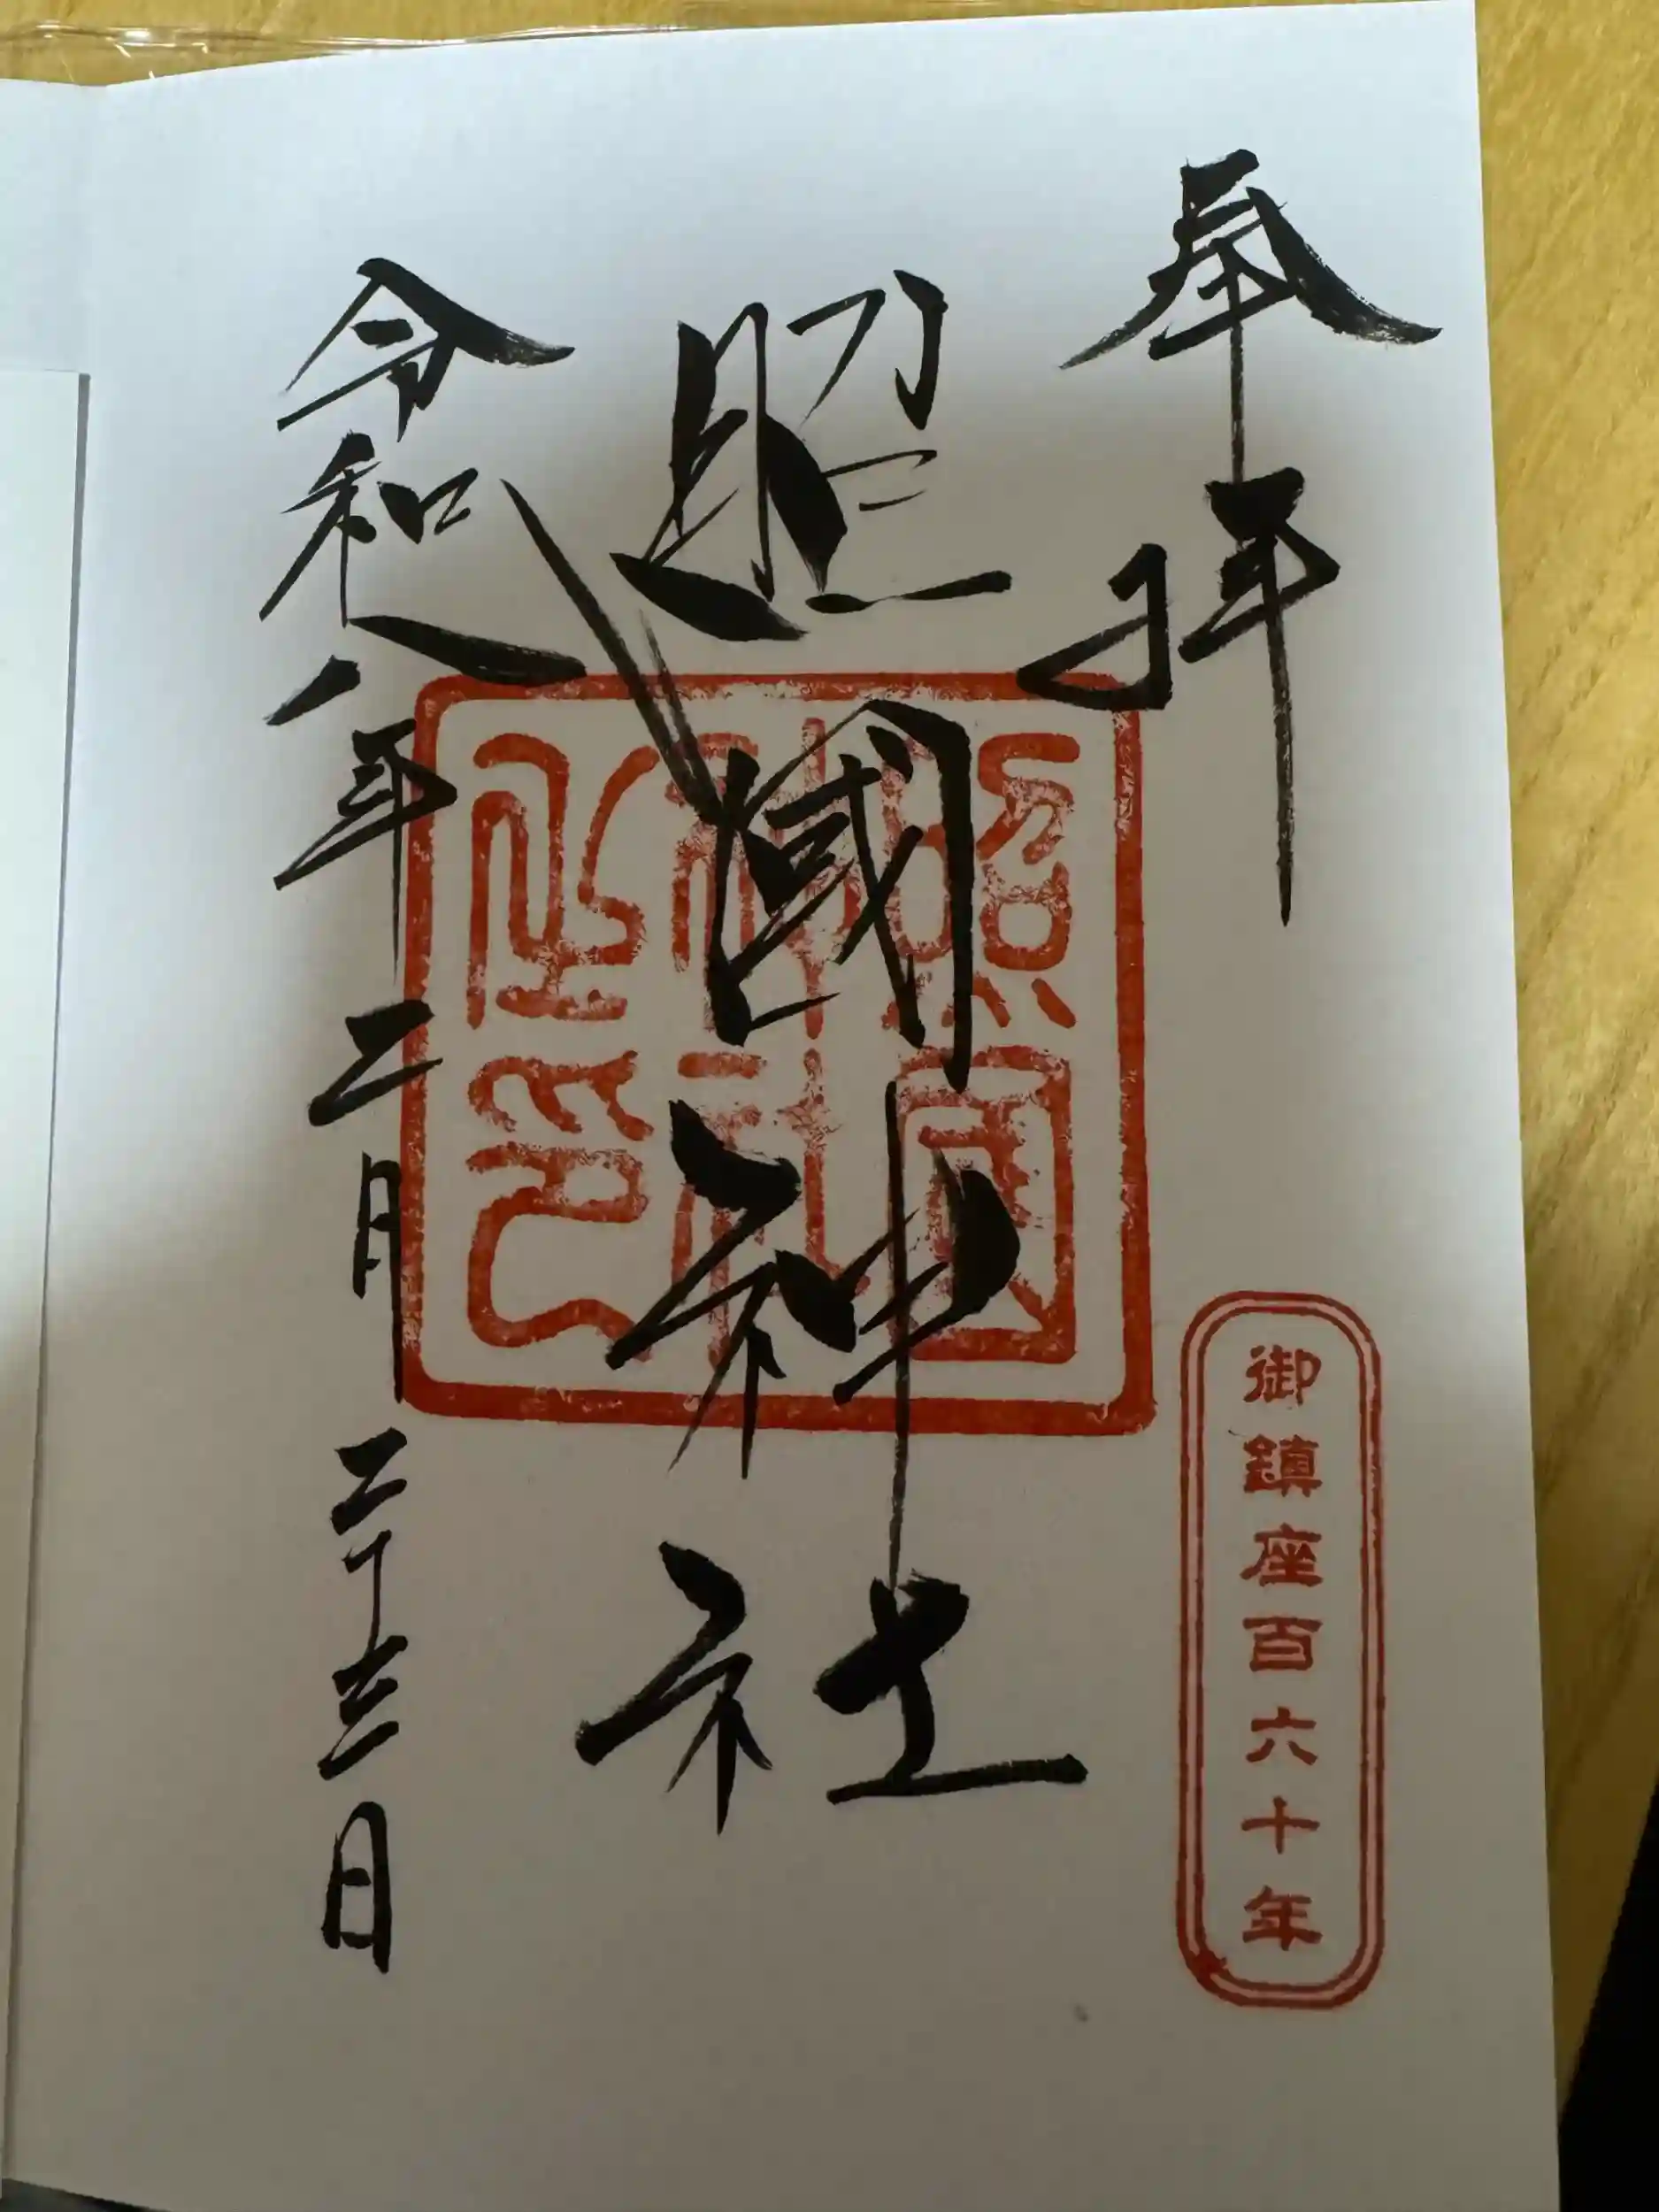 奉拝
照國神社
令和八年二月二十三日
照國神社之璽印
御鎮座百六十年